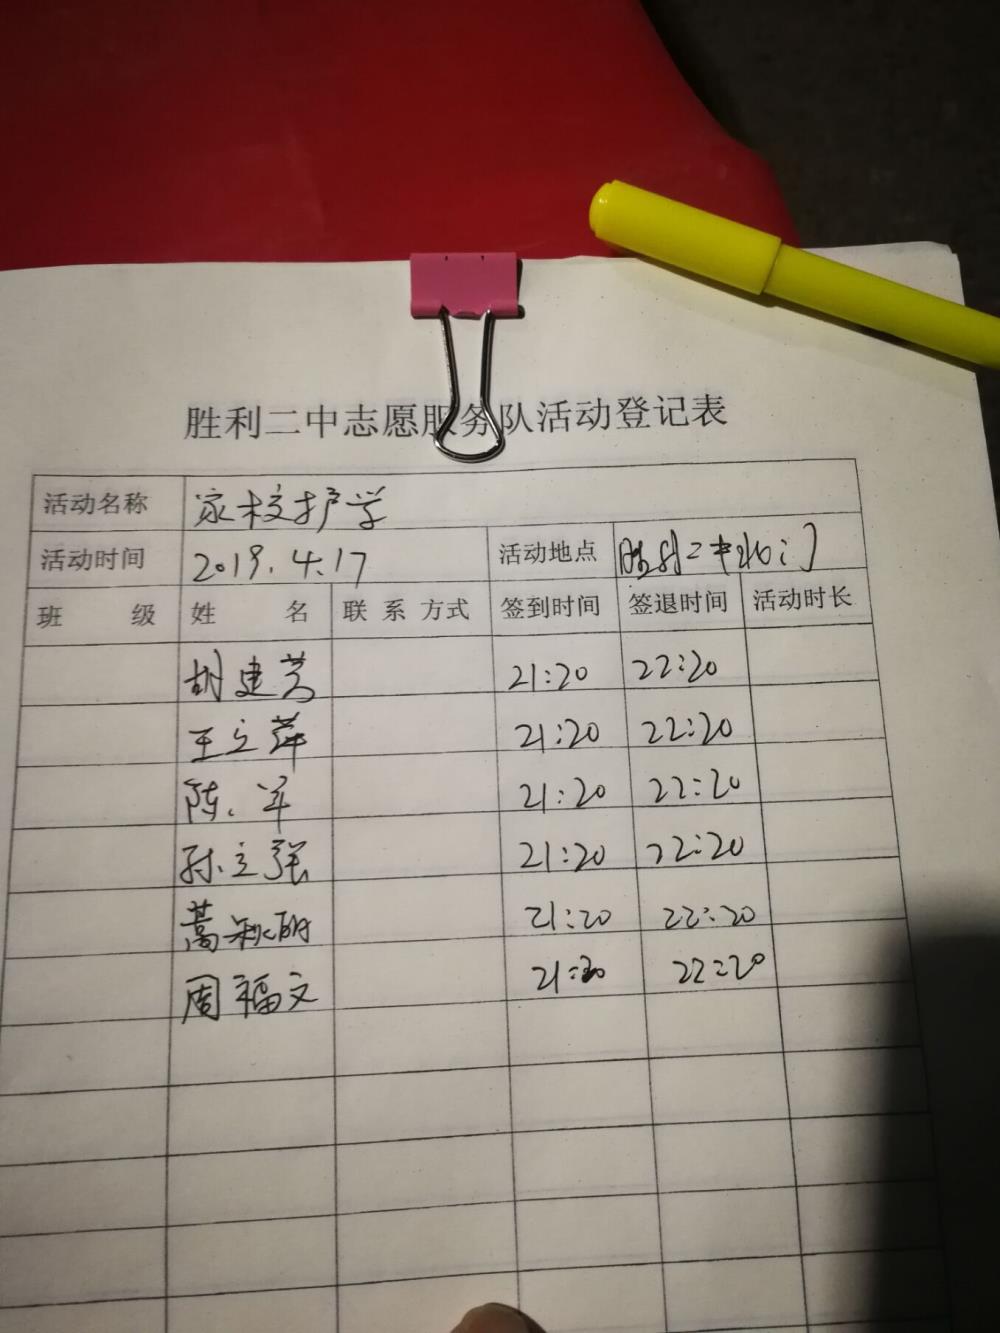 胜利二中志愿服务队活动登记表
活动名称 家校护学
活动时间 2019.4.17 活动地点 胜利二中北门
班 级 姓 名 联 系 方式 签到时间 签退时间 活动时长
胡建芳 21:20 22:20
王立萍 21:20 22:20
陈军 21:20 22:20
孙立强 21:20 22:20
蒿秋明 21:20 22:20
周福文 21:20 22:20